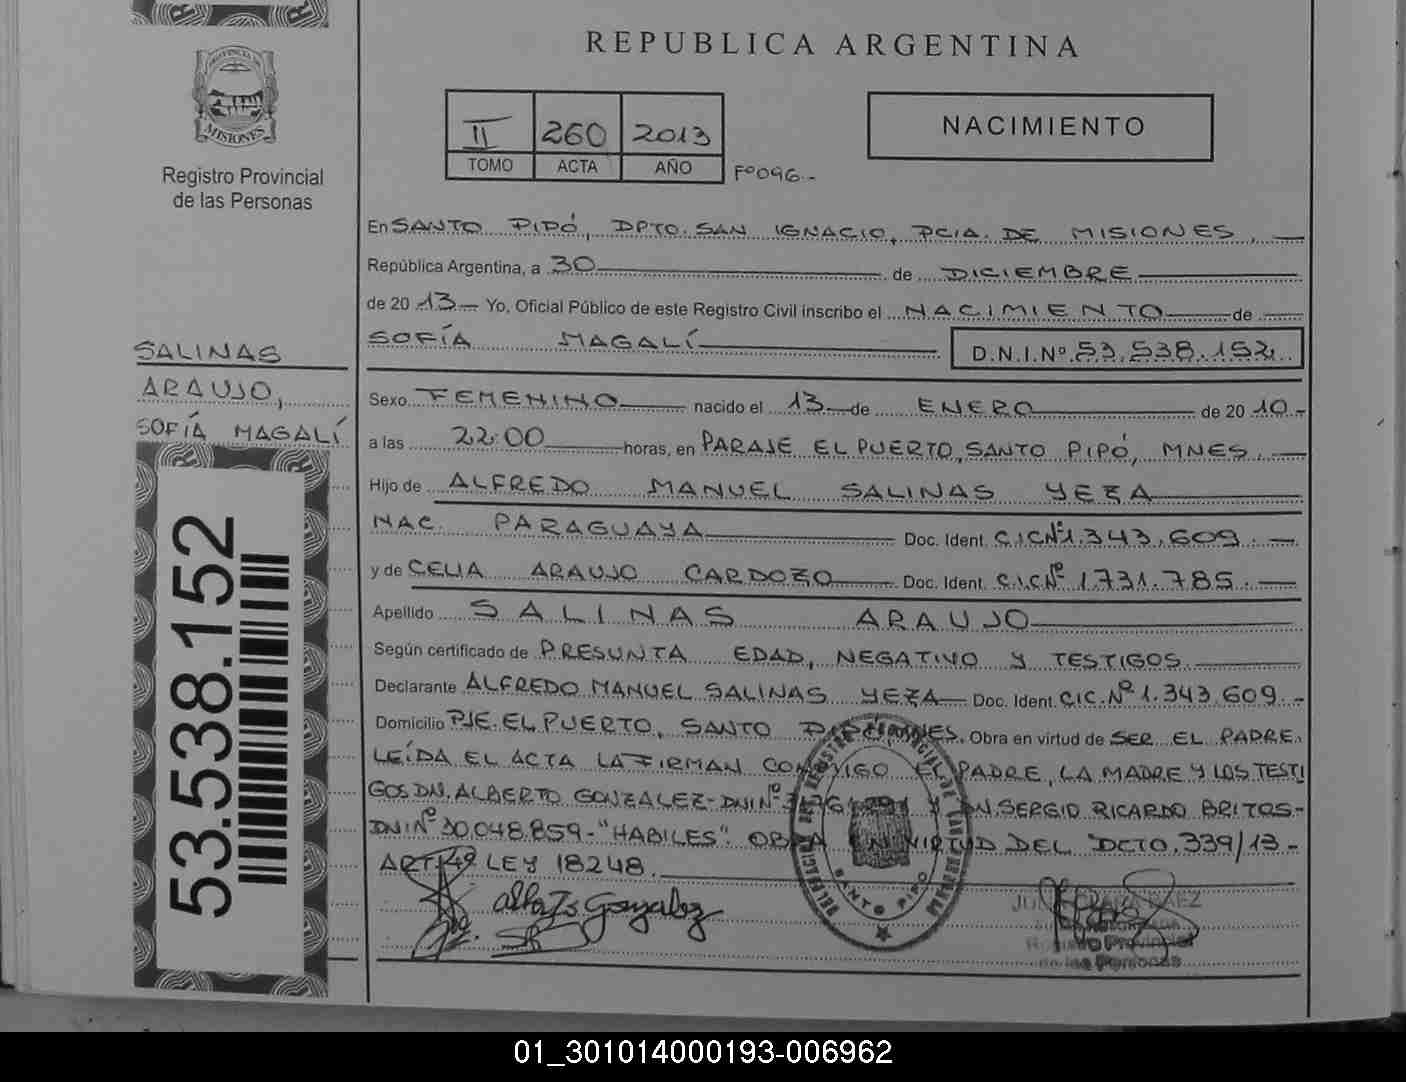 REPUBLICA ARGENTINA
PROVINCIA DE
MISIONES
Registro Provincial
de las Personas
II 260 2013
TOMO ACTA AÑO Fº096.-
NACIMIENTO
En SANTO PIPÓ, DPTO. SAN IGNACIO, PCIA. DE MISIONES,
República Argentina, a 30 de DICIEMBRE
de 20 13 Yo, Oficial Público de este Registro Civil inscribo el NACIMIENTO de
SOFÍA MAGALÍ D.N.I. Nº 53.538.152
SALINAS
ARAUJO,
SOFÍA MAGALÍ
53.538.152
Sexo FEMENINO nacido el 13 de ENERO de 20 10.-
a las 22:00 horas, en PARAJE EL PUERTO, SANTO PIPÓ, MNES.
Hijo de ALFREDO MANUEL SALINAS YEZA
NAC. PARAGUAYA Doc. Ident. C.I.C.Nº1.343.609.
y de CELIA ARAUJO CARDOZO Doc. Ident. C.I.C.Nº 1.731.785.
Apellido SALINAS ARAUJO
Según certificado de PRESUNTA EDAD, NEGATIVO Y TESTIGOS.
Declarante ALFREDO MANUEL SALINAS YEZA Doc. Ident. CIC.Nº1.343.609.-
Domicilio PJE. EL PUERTO, SANTO PIPÓ, MNES. Obra en virtud de SER EL PADRE.
LEÍDA EL ACTA LA FIRMAN CONMIGO EL PADRE, LA MADRE Y LOS TESTI
GOS DN. ALBERTO GONZALEZ-DNI Nº Y DN. SERGIO RICARDO BRITOS-
DNI Nº 30.048.859-"HABILES". OBRA EN VIRTUD DEL DCTO. 339/13-
ART.4º LEY 18248.
Gonzalez
DELEGACION DEL REGISTRO PROVINCIAL DE LAS PERSONAS
SANTO PIPO
BAEZ
Registro Provincial
de las Personas
01_301014000193-006962